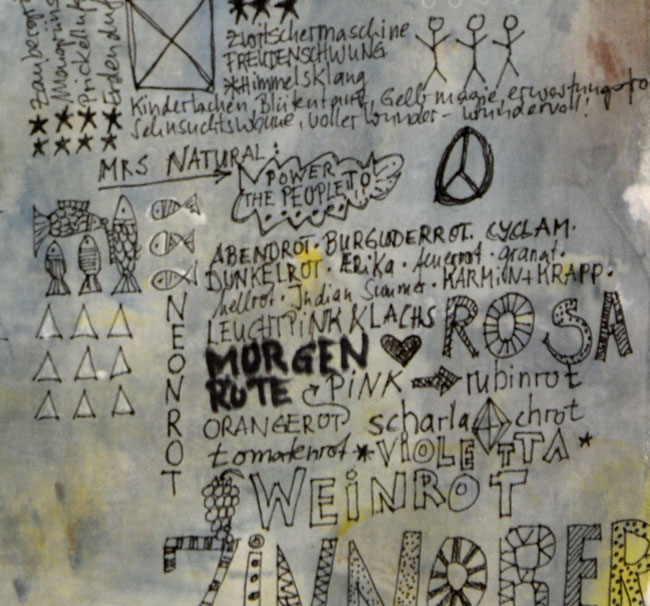 Zwitschermaschine
FREUDENSCHWUNG
*Himmelsklang
Kinderlachen, Blütentanz, Gelb magie, erwartungsfro
Sehnsuchtswonne, voller Wunder - wundervoll!
MRS NATURAL:
POWER TO
THE PEOPLE!!
ABENDROT. BURGUNDERROT. CYCLAM.
DUNKELROT. ÆRiKA. feuerrot. granat.
hellrot. Indian Summer. KARMiN + KRAPP.
LEUCHTPiNK KLACHS ROSA
NEONROT
MORGEN
RÖTE PiNK rubinrot
ORANGEROT scharlachrot
tomatenrot *ViOLETTA*
WEiNROT
ZiNNOBER